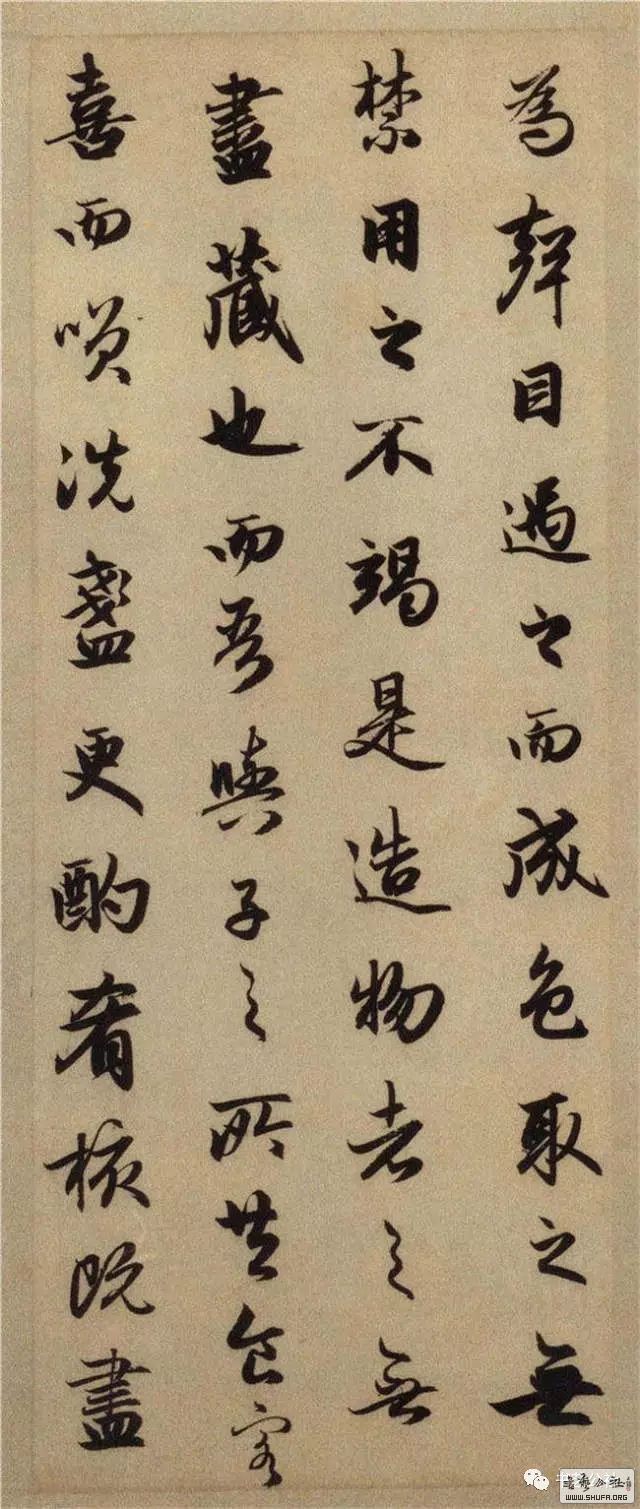 為聲目遇之而成色取之無
禁用之不竭是造物者之無
盡藏也而吾與子之所共食客
喜而咲洗盞更酌肴核既盡
WWW.SHUFA.ORG